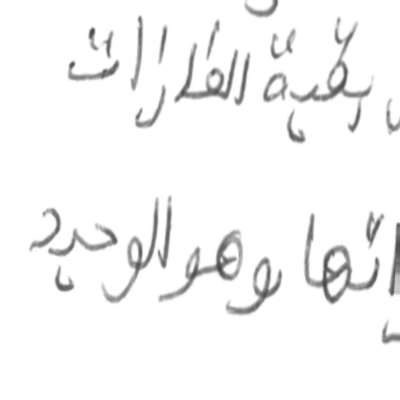 بقية القارات
إنها وهو الوحيد